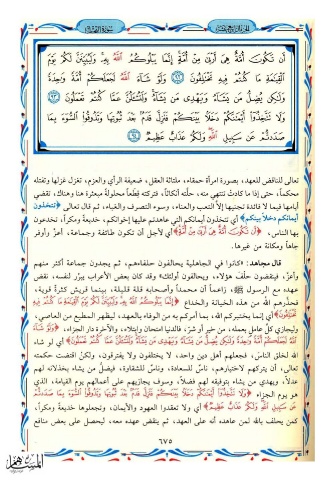 أَن تَكُونَ أُمَّةٌ هِيَ أَرْبَىٰ مِنْ أُمَّةٍ إِنَّمَا يَبْلُوكُمُ اللَّهُ بِهِ وَلَيُبَيِّنَنَّ لَكُمْ يَوْمَ
الْقِيَامَةِ مَا كُنتُمْ فِيهِ تَخْتَلِفُونَ ٩٢ وَلَوْ شَاءَ اللَّهُ لَجَعَلَكُمْ أُمَّةً وَاحِدَةً
وَلَٰكِن يُضِلُّ مَن يَشَاءُ وَيَهْدِي مَن يَشَاءُ وَلَتُسْأَلُنَّ عَمَّا كُنتُمْ تَعْمَلُونَ ٩٣
وَلَا تَتَّخِذُوا أَيْمَانَكُمْ دَخَلًا بَيْنَكُمْ فَتَزِلَّ قَدَمٌ بَعْدَ ثُبُوتِهَا وَتَذُوقُوا السُّوءَ بِمَا
صَدَدتُّمْ عَن سَبِيلِ اللَّهِ وَلَكُمْ عَذَابٌ عَظِيمٌ ٩٤
تعالى للناقض للعهد، بصورة امرأة حمقاء، ملتاثة العقل، ضعيفة الرأي والعزم، تغزل غزلها وتفتله
محكماً، حتى إذا ما كادت تنتهي منه، حلّته أنكاثاً، فتركته قطعاً محلولة مبعثرة هنا وهناك، تقضي
أيامها فيما لا فائدة تجنيها إلا التعب والعناء، وسوء التصرف والغباء، ثم قال تعالى ﴿تتخذون
أيمانكم دخلاً بينكم﴾ أي تتخذون أيمانكم التي عاهدتم عليها إخوانكم، خديعة ومكراً، تخدعون
بها الناس، ﴿أن تكون أمة هي أربى من أمة﴾ أي لأجل أن تكون طائفة وجماعة، أعزّ وأوفر
جاهاً ومكانة من غيرها.
قال مجاهد: «كانوا في الجاهلية يحالفون حلفاءهم، ثم يجدون جماعة أكثر منهم
وأعزّ، فينقضون حلف هؤلاء، ويحالفون أولئك» وقد كان بعض الأعراب يبرر لنفسه، نقض
عهده مع الرسول ﷺ، زاعماً أن محمداً وأصحابه قلة قليلة، بينما قريش كثرة قوية،
فحذّرهم الله من هذه الخيانة والخداع ﴿إنما يبلوكم الله به وليبينن لكم يوم القيامة ما كنتم فيه
تختلفون﴾ أي إنما يختبركم الله، بما أمركم به من الوفاء بالعهد، ليظهر المطيع من العاصي،
وليجازي كل عامل بعمله، من خير أو شرّ، فالدنيا امتحان وابتلاء، والآخرة دار الجزاء، ﴿ولو شاء
الله لجعلكم أمة واحدة ولكن يضل من يشاء ويهدي من يشاء ولتسألن عما كنتم تعملون﴾ أي لو شاء
الله لخلق الناس، فجعلهم أهل دين واحد، لا يختلفون ولا يفترقون، ولكن اقتضت حكمته
تعالى، أن يتركهم لاختيارهم، ناسٌ للسعادة، وناسٌ للشقاوة، فيضلُّ من يشاء بخذلانه لهم
عدلاً، ويهدي من يشاء بتوفيقه لهم فضلاً، وسوف يجازيهم على أعمالهم يوم القيامة، الذي
هو يوم الجزاء ﴿ولا تتخذوا أيمانكم دخلاً بينكم فتزل قدم بعد ثبوتها وتذوقوا السوء بما صددتم
عن سبيل الله ولكم عذاب عظيم﴾ أي ولا تعقدوا العهود والأيمان، وتجعلوها خديعة ومكراً،
كمن يحلف بالله لمن عاهده أنه على العهد، ثم ينقض عهده معه، ليحصل على بعض منافع
٦٧٥